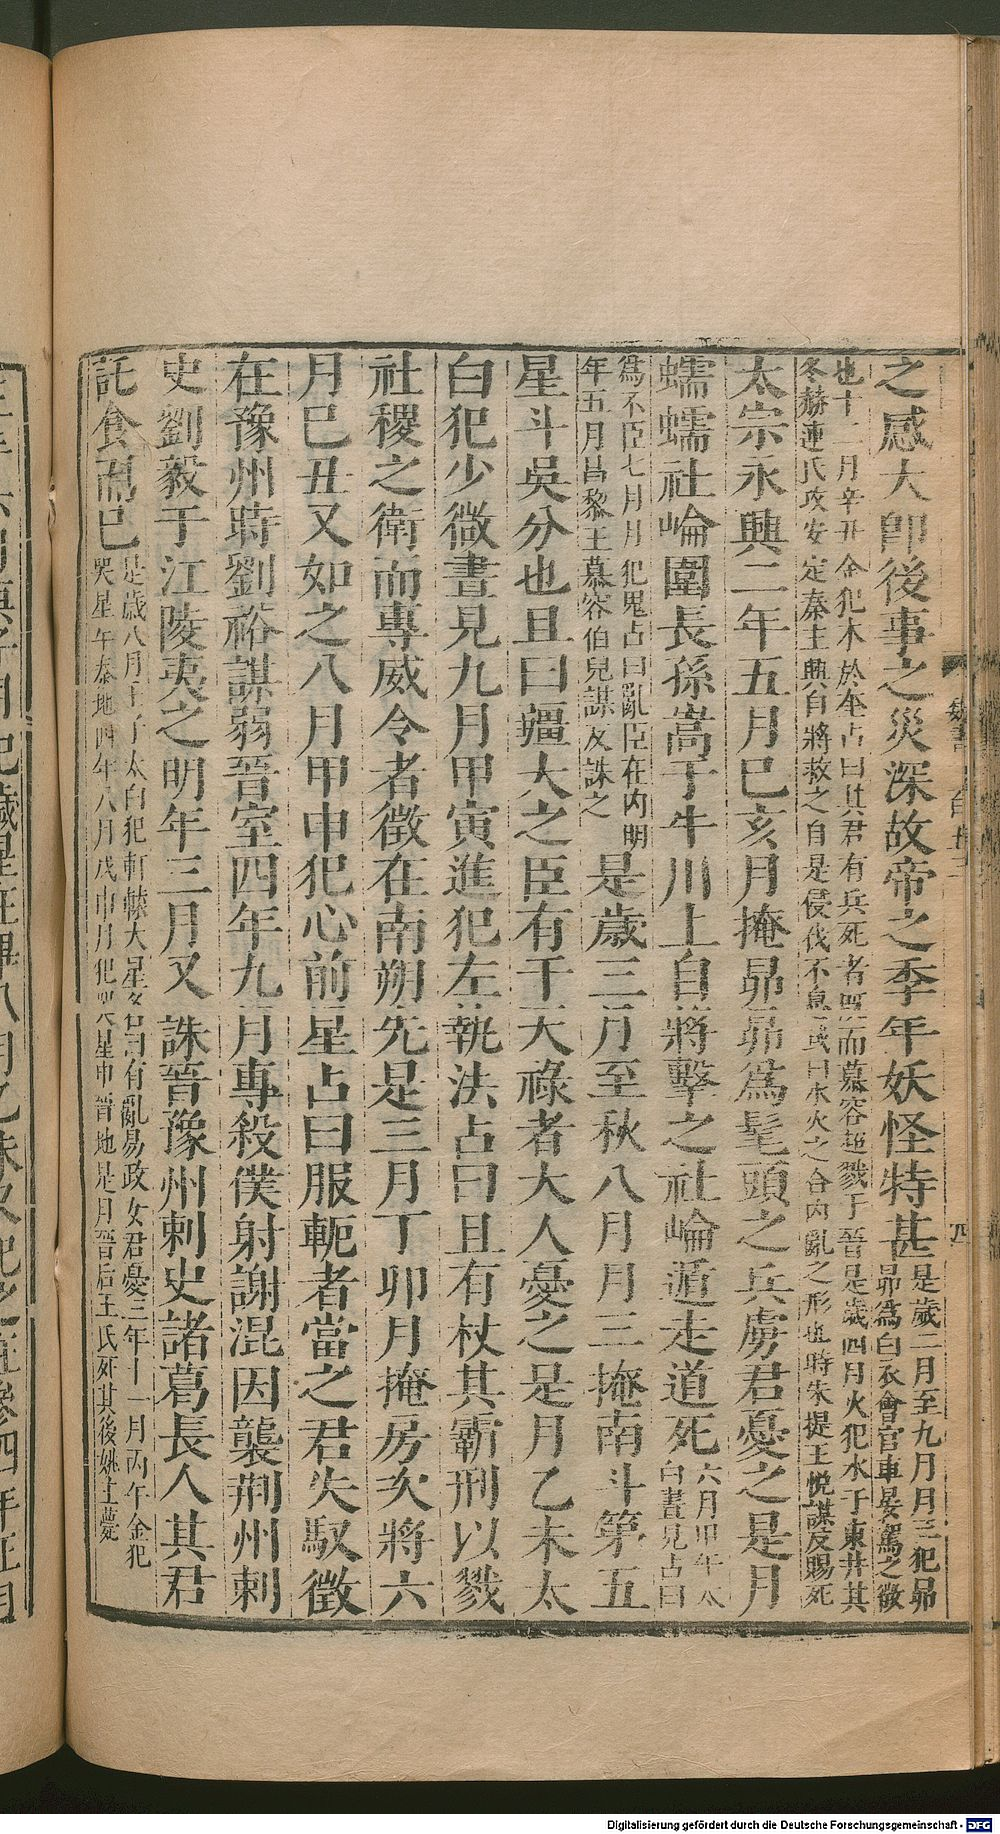 之感大即後事之災深故帝之季年妖怪特甚是歲二月至九月月三犯昴
昴爲白衣會宮車晏駕之徵
也十二月辛丑金犯木於奎占曰其君有兵死者既而慕容超戮于晉是歲四月火犯水于東井其
冬赫連氏攻安定秦主興自將救之自是侵伐不息或曰水火之合內亂之形也時朱提王悅謀反賜死
太宗永興二年五月己亥月掩昴昴爲髦頭之兵虜君憂之是月
蠕蠕社崘圍長孫嵩于牛川上自將擊之社崘遁走道死六月甲午太
白晝見占曰
爲不臣七月月犯鬼占曰亂臣在內明
年五月昌黎王慕容伯兒謀反誅之是歲三月至秋八月月三掩南斗第五
星斗吳分也且曰疆大之臣有干天祿者大人憂之是月乙未太
白犯少微晝見九月甲寅進犯左執法占曰且有杖其霸刑以戮
社稷之衛而專威令者徵在南朔先是三月丁卯月掩房次將六
月巳丑又如之八月甲申犯心前星占曰服軛者當之君失馭徵
在豫州時劉裕謀弱晉室四年九月專殺僕射謝混因襲荆州刺
史劉毅于江陵夷之明年三月又誅晉豫州刺史諸葛長人其君
託食而已是歲八月壬子太白犯軒轅大星占曰有亂易政女君憂三年十一月丙午金犯
哭星午秦地四年八月戊申月犯哭星申晉地是月晉后王氏死其後姚主薨
魏書
四
Digitalisierung gefördert durch die Deutsche Forschungsgemeinschaft - DFG